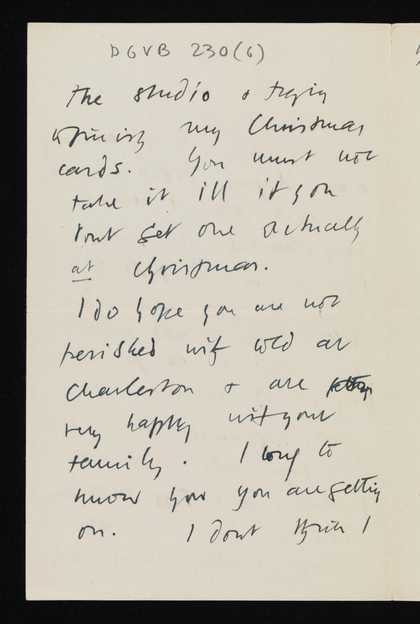 DGVB 230(6)
the studio & trying
to finish my Christmas
cards. You must not
take it ill if you
dont get one actually
at Christmas.
I do hope you are not
perished with cold at
Charleston & are
very happy with your
family. I long to
know how you are getting
on. I dont think I